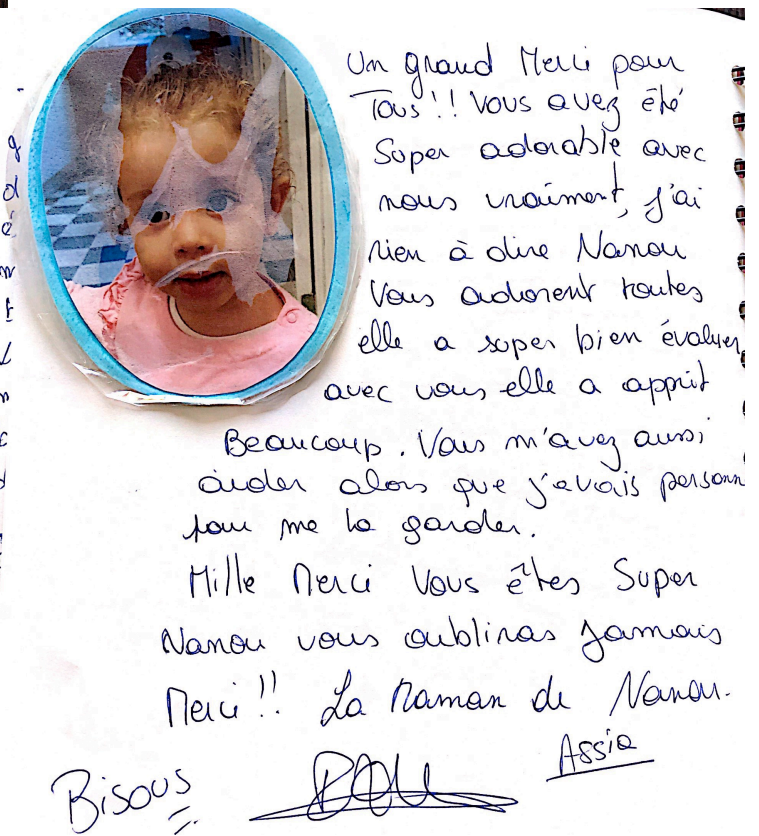 Un grand Merci pour
Tous!! Vous avez été
Super adorable avec
nous vraiment, j'ai
rien à dire Nanou
Vous adorent toutes
elle a super bien évaluer
avec vous elle a apprit
Beaucoup. Vous m'avez aussi
aider alors que j'avais personn
pour me la garder.
Mille Merci Vous êtes Super
Nanou vous oubliras jamais
Merci!! La Maman de Nanou.
Assia
Bisous